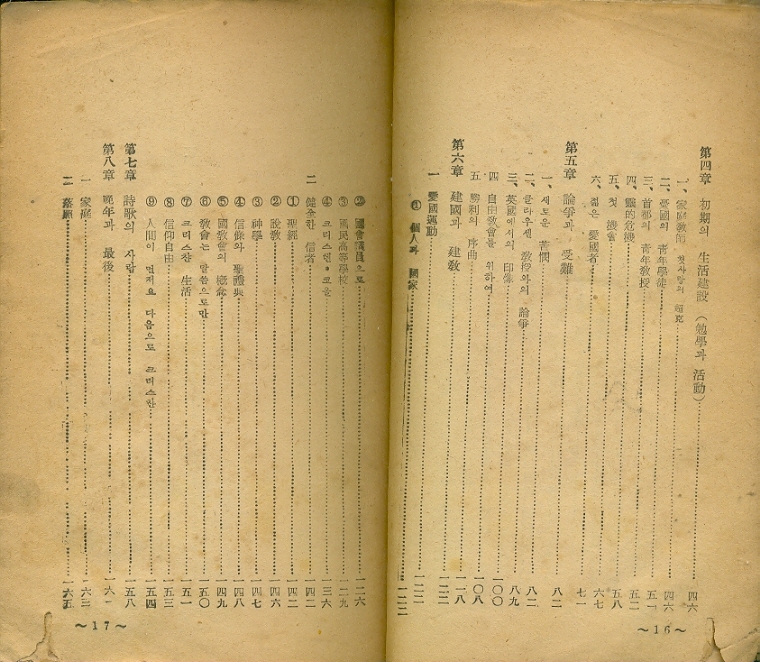 第四章 初期의 生活建設 (勉學과 活動) 四六
一、家庭敎師 첫사랑의 四六
二、愛國의 靑年學徒 四六
三、首都의 靑年敎授 五一
四、靈的危機 五二
五、첫 機會 五八
六、젊은 愛國者 六七
七一
第五章 論爭과 受難 八二
一、새로운 苦憫 八二
二、클라우센 敎授와의 論爭 八二
三、英國에서의 印像 八九
四 自由敎會를 위하여 一〇〇
五 勝利의 序曲 一〇八
第六章 建國과 建敎 一一八
一 愛國運動 一二二
① 個人과 國家 一二二
~16~
② 國會議員으로 一二六
③ 國民高等學校 一二九
④ 크리스텐・코올 一三六
二 健全한 信者 一四二
① 聖經 一四二
② 說敎 一四六
③ 神學 一四七
④ 信條와 聖禮典 一四八
⑤ 國敎會의 概念 一四九
⑥ 敎會는 말씀으로만 一五〇
⑦ 크리스챤 生活 一五一
⑧ 信仰自由 一五三
⑨ 人間이 먼저요 다음으로 크리스챤 一五四
第七章 詩歌의 사람 一五八
第八章 晩年과 最後 一六二
一 家庭 一六三
二 落照 一六五
~17~